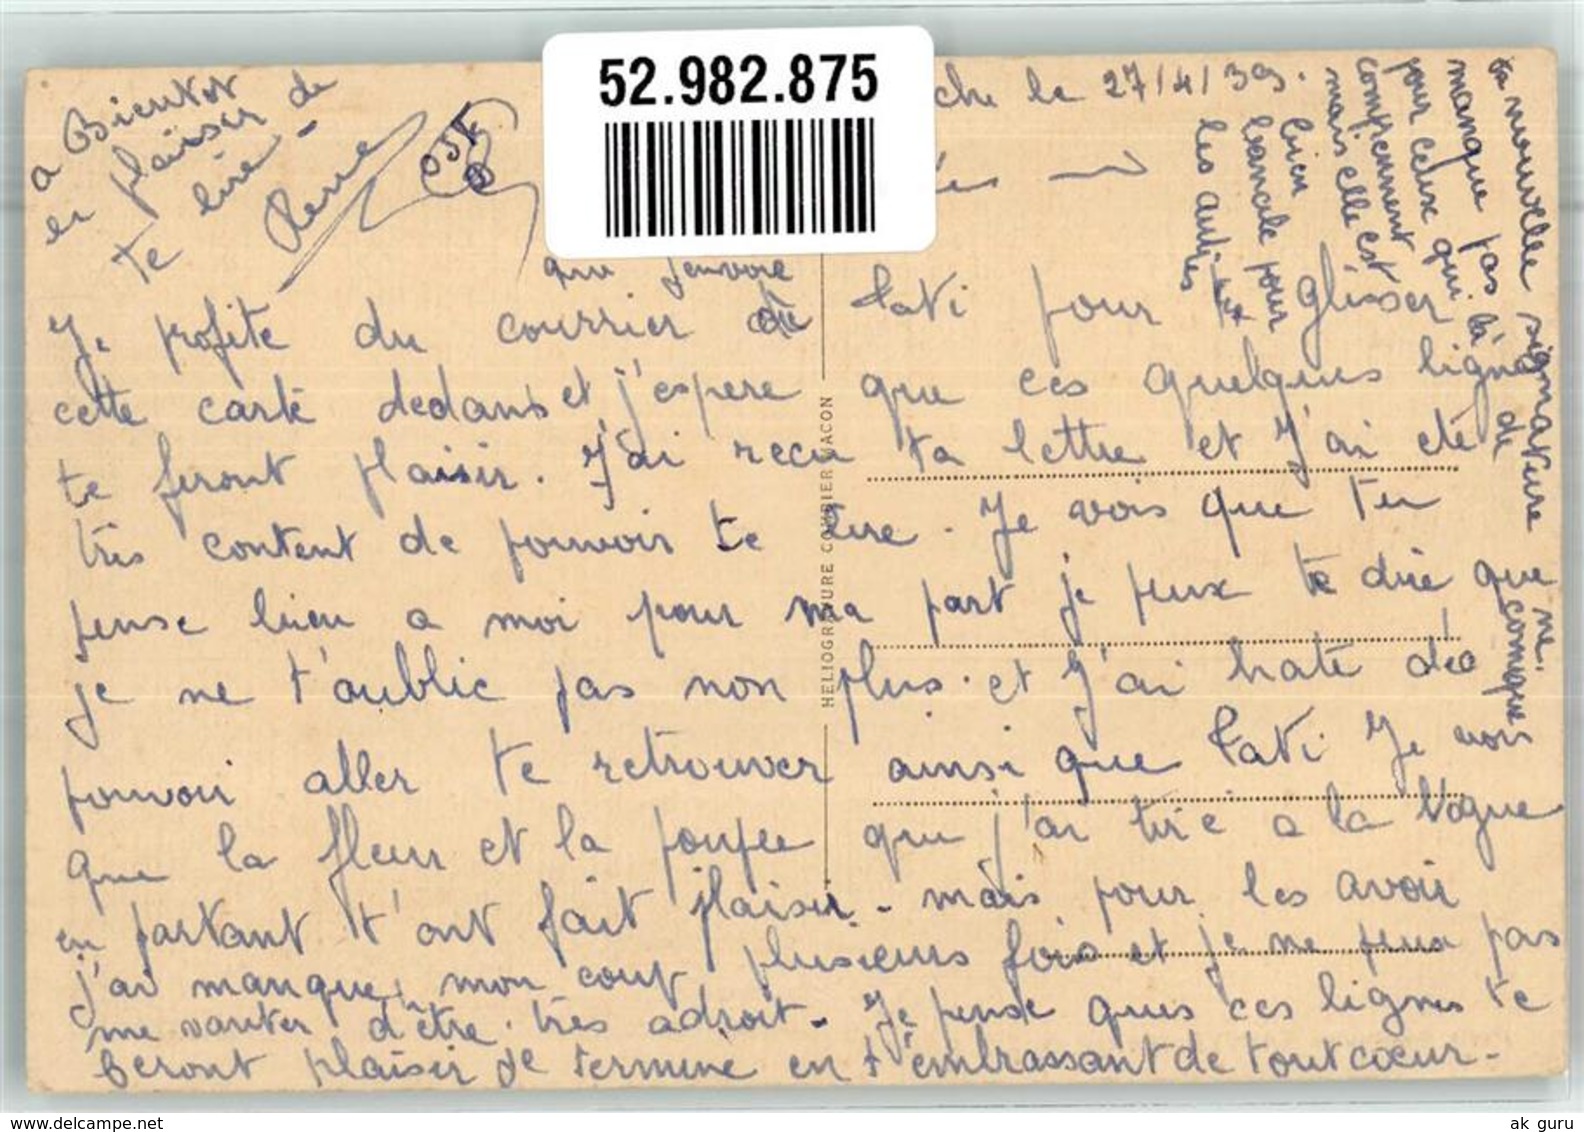 52.982.875
che le 27/4/39.
a Bientot
le plaisir de
te lire -
Rene
qui j'envoie
Je profite du courrier a Tati pour glisser
cette carte dedans et j'espere que ces quelques ligne
te feront plaisir. J'ai recu ta lettre et J'ai eté
très content de pouvoir te Lire. Je vois que tu
pense bien a moi pour ma part je peux te dire que
je ne t'oublie pas non plus. et J'ai hate de
pouvoir aller te retrouver ainsi que Tati Je vois
que la fleur et la poupée que j'ai tire a la Vogue
en partant t'ont fait plaisir. mais pour les avoir
j'ai manque mon coup plusieurs fois et je ne peux pas
me vanter d'être très adroit. Je pense ques ces lignes te
Seront plaisir Je termine en t'embrassant de tout cœur.
ta nouvelle signature ne
manque pas là de comique
pour ceux qui
comprennent
mais elle est
bien
banale pour
les autres
HELIOGRAVURE COMBIER MACON
ak guru